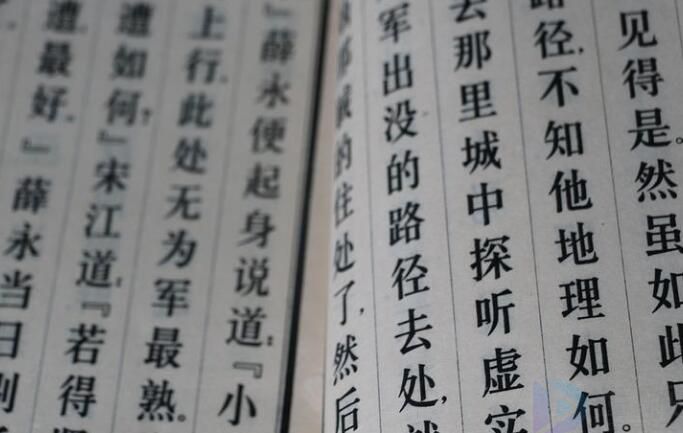 见得是。然虽如此只
路径,不知他地理如何。
去那里城中探听虚实
军出没的路径去处,
的住处了,然后
』薛永便起身说道:『小
上行。此处无为军最熟。
遭如何?』宋江道:『若得
遭最好。』薛永当日别